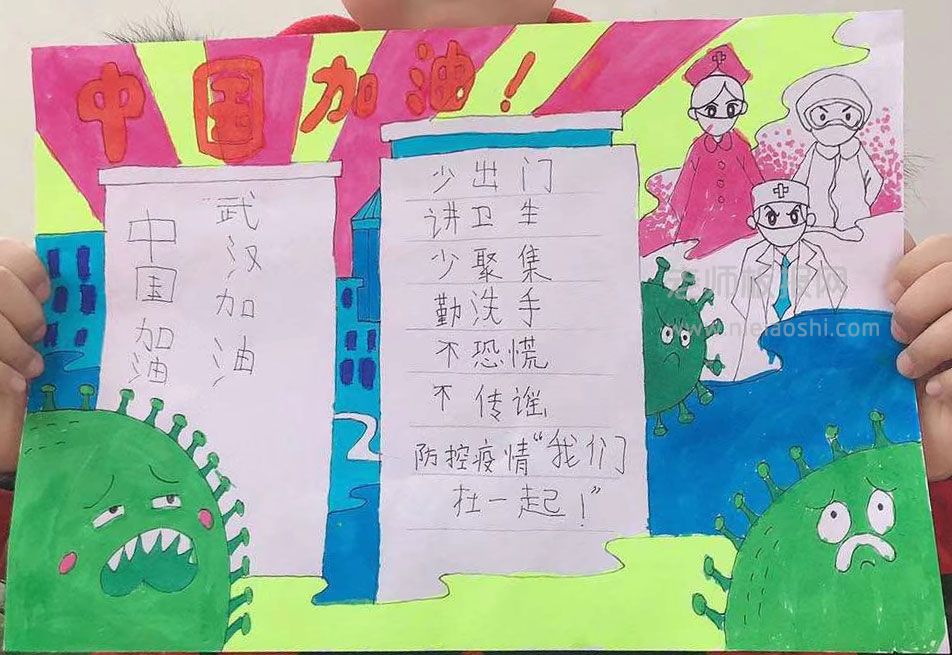 中国加油！
“武汉加油
中国加油
少出门
讲卫生
少聚集
勤洗手
不恐慌
不传谣
防控疫情“我们
在一起！”
老师板报网